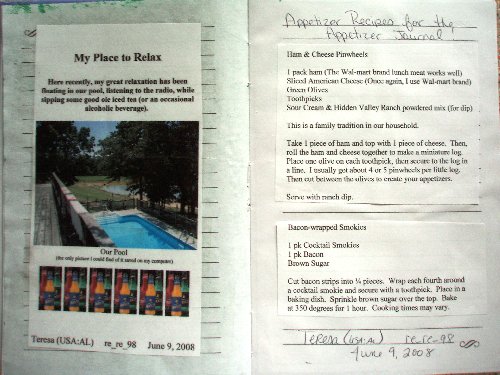 My Place to Relax
Here recently, my great relaxation has been
floating in our pool, listening to the radio, while
sipping some good ole iced tea (or an occasional
alcoholic beverage).
Our Pool
(the only picture I could find of it saved on my computer)
Teresa (USA:AL) re_re_98 June 9, 2008
Appetizer Recipes for the
Appetizer Journal
Ham & Cheese Pinwheels
1 pack ham (The Wal-mart brand lunch meat works well)
Sliced American Cheese (Once again, I use Wal-mart brand)
Green Olives
Toothpicks
Sour Cream & Hidden Valley Ranch powdered mix (for dip)
This is a family tradition in our household.
Take 1 piece of ham and top with 1 piece of cheese. Then,
roll the ham and cheese together to make a miniature log.
Place one olive on each toothpick, then secure to the log in
a line. I usually got about 4 or 5 pinwheels per little log.
Then cut between the olives to create your appetizers.
Serve with ranch dip.
Bacon-wrapped Smokies
1 pk Cocktail Smokies
1 pk Bacon
Brown Sugar
Cut bacon strips into ¼ pieces. Wrap each fourth around
a cocktail smokie and secure with a toothpick. Place in a
baking dish. Sprinkle brown sugar over the top. Bake
at 350 degrees for 1 hour. Cooking times may vary.
Teresa (USA:AL) re_re_98
June 9, 2008